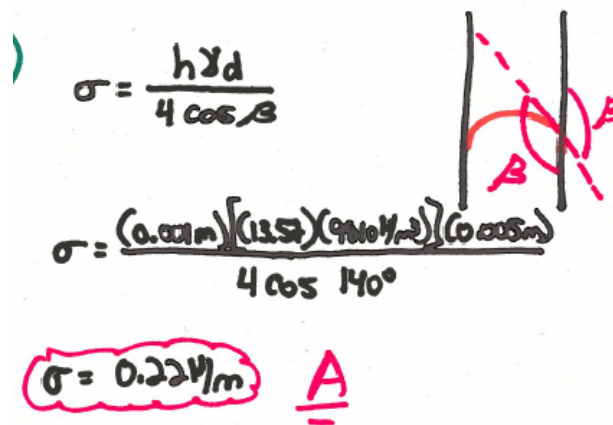 σ = hγd / 4 cos β
β
β
σ = (0.001m)[(13.57)(9810 N/m³)](0.005m) / 4 cos 140°
σ = 0.22 N/m
A